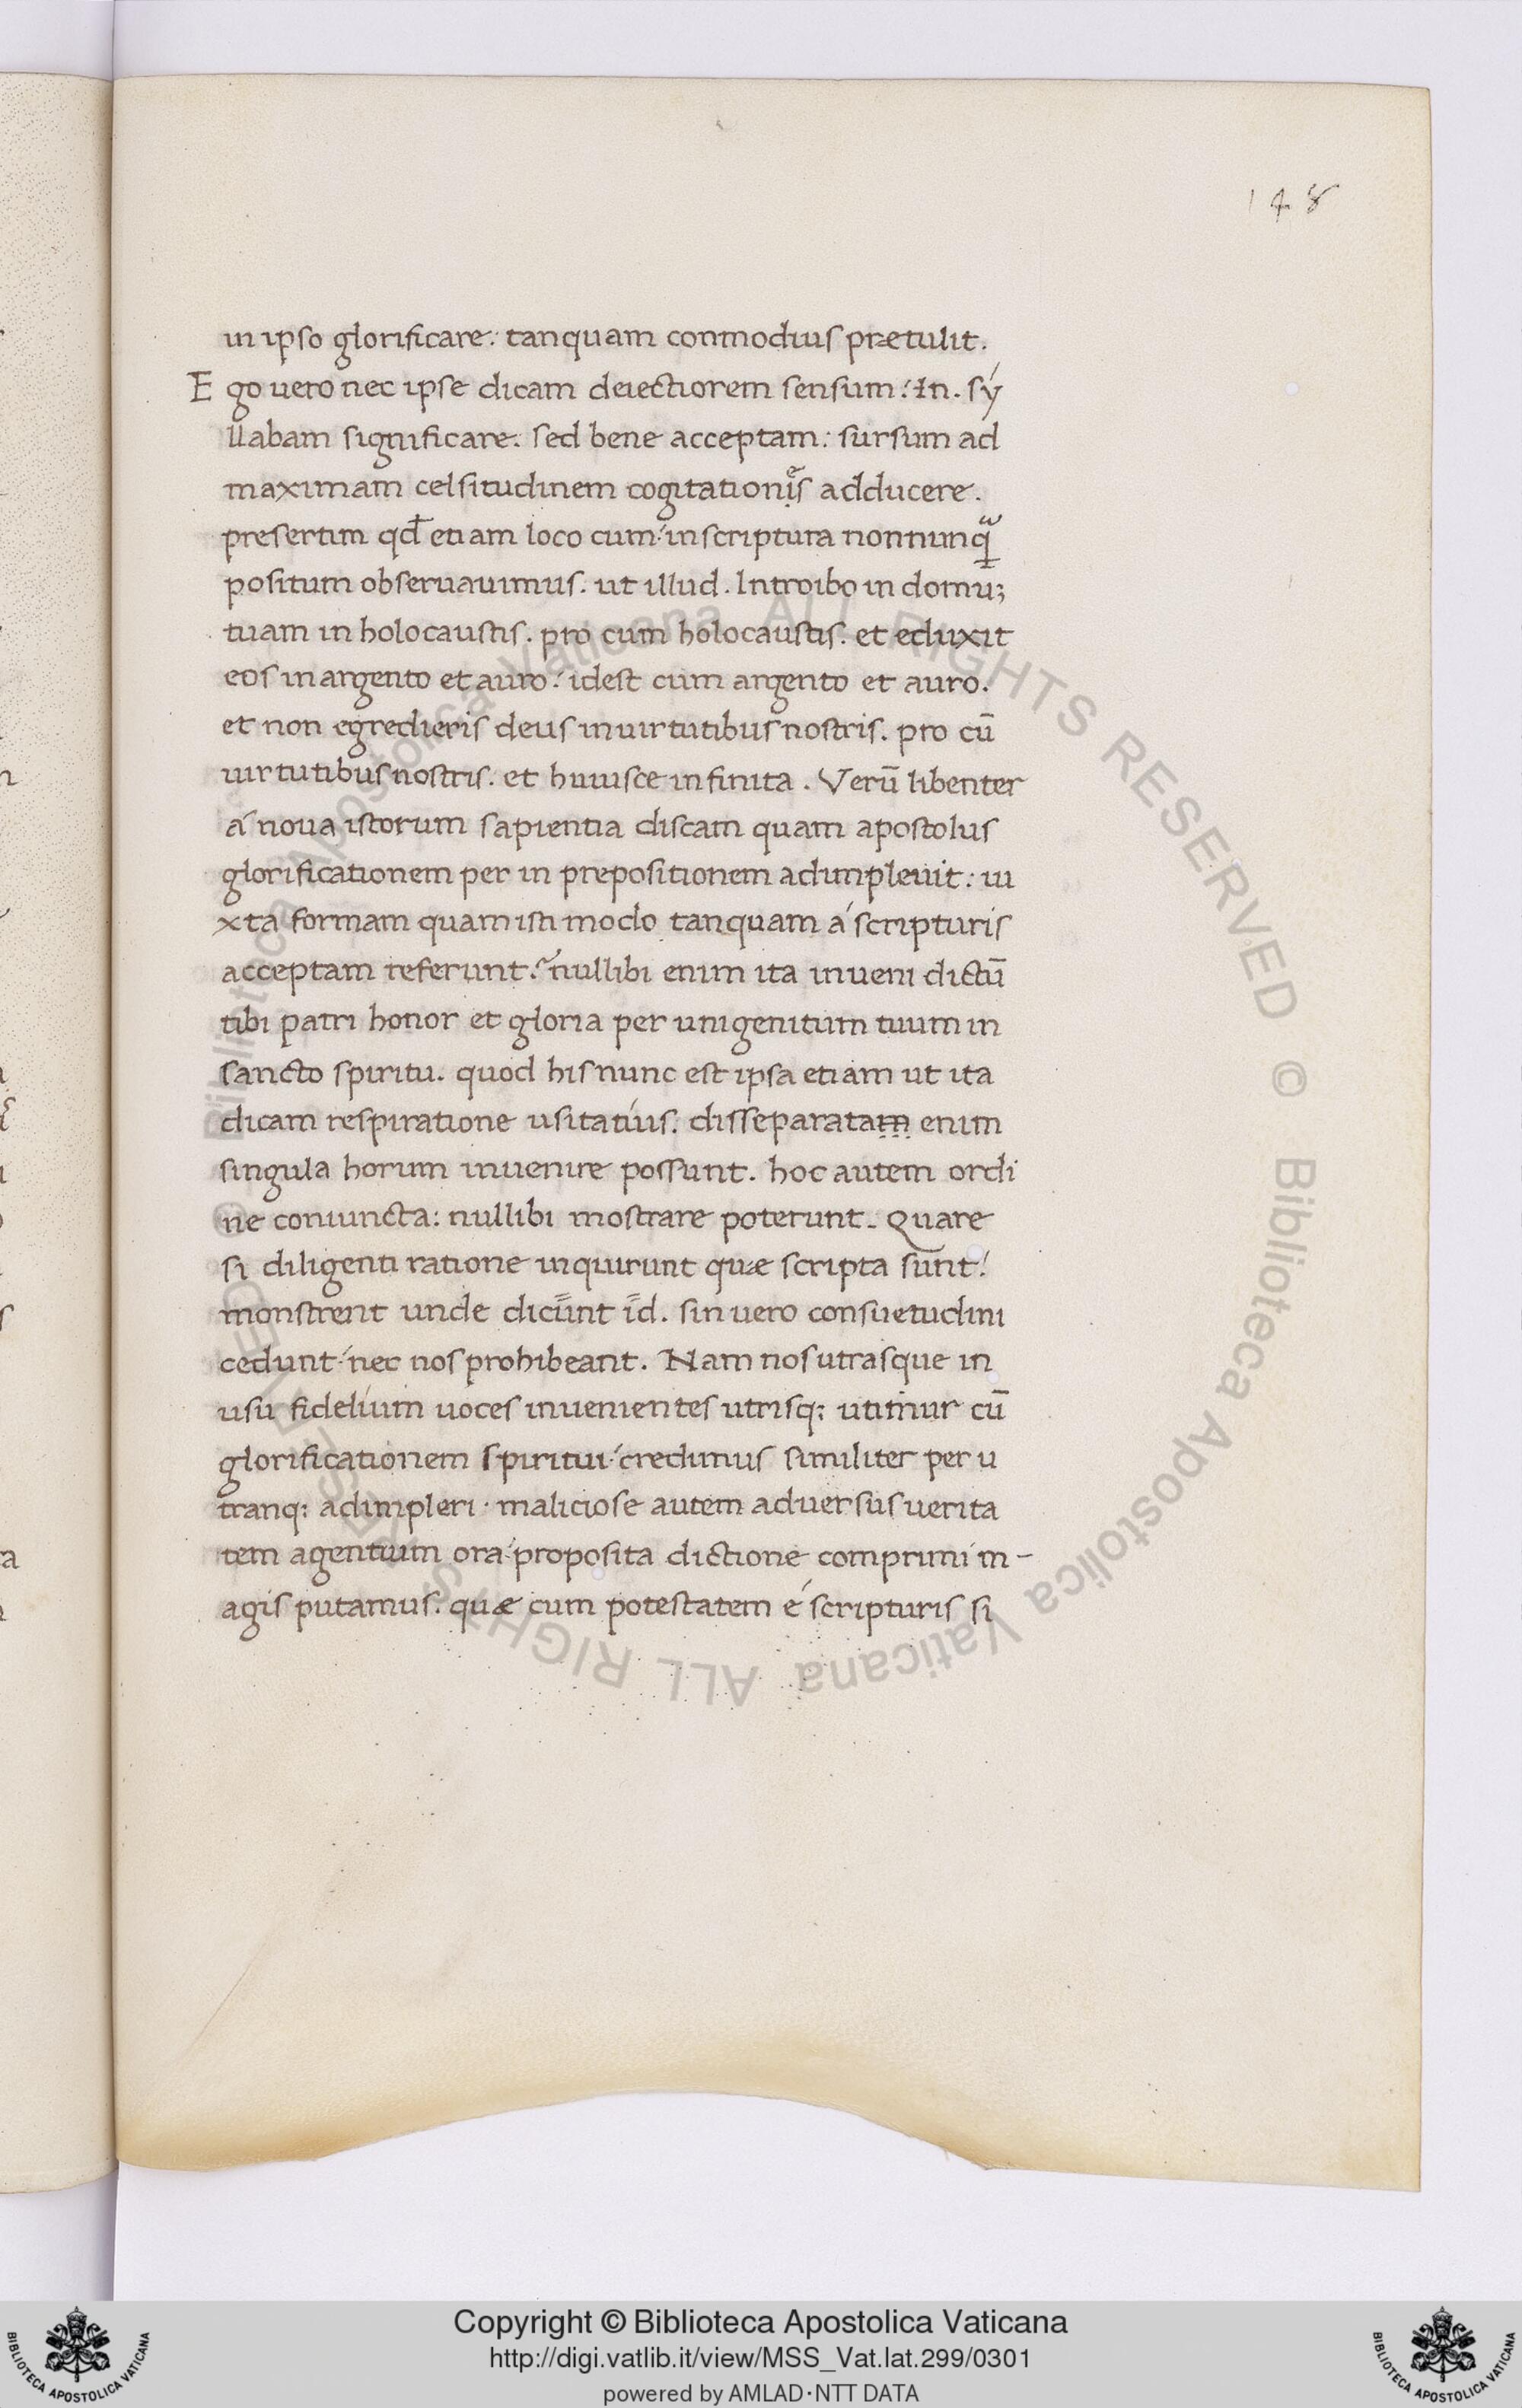 148
in ipso glorificare: tanquam conmodius prætulit.
Ego uero nec ipse dicam deiectiorem sensum: In. sý
llabam significare. sed bene acceptam: sursum ad
maximam celsitudinem cogitationẹs adducere.
presertim qđ etiam loco cum: in scriptura nonnunꝗᷓ
positum obseruauimus. ut illud. Introibo in domu;
tuam in holocaustis. pro cum holocaustis. et eduxit
eos in argento et auro: idest cum argento et auro.
et non egredieris deus in uirtutibus nostris. pro cū
uirtutibus nostris. et huiusce infinita. Verū libenter
á noua istorum sapientia discam quam apostolus
glorificationem per in prepositionem adimpleuit: iu
xta formam quam isti modo tanquam á scripturis
acceptam referunt. nullibi enim ita inueni dictū
tibi patri honor et gloria per unigenitum tuum in
sancto spiritu. quod his nunc est ipsa etiam ut ita
dicam respiratione usitatius. disseparatam enim
singula horum inuenire possunt. hoc autem ordi
ne coniuncta: nullibi mostrare poterunt. Quare
si diligenti ratione inquirunt quæ scripta sunt:
monstrent unde dicunt id. sin uero consuetudini
cedunt: nec nos prohibeant. Nam nos utrasque in
usu fidelium uoces inuenientes utrisq; utimur cū
glorificationem spiritui: credimus similiter per u
tranq; adimpleri. maliciose autem aduersus uerita
tem agentium ora: proposita dictione comprimi m-
agis putamus. quæ cum potestatem é scripturis si
Biblioteca Apostolica Vaticana ALL RIGHTS RESERVED © Biblioteca Apostolica Vaticana ALL RIGHTS RESERVED ©
Copyright © Biblioteca Apostolica Vaticana
http://digi.vatlib.it/view/MSS_Vat.lat.299/0301
powered by AMLAD·NTT DATA
BIBLIOTECA APOSTOLICA VATICANA
BIBLIOTECA APOSTOLICA VATICANA